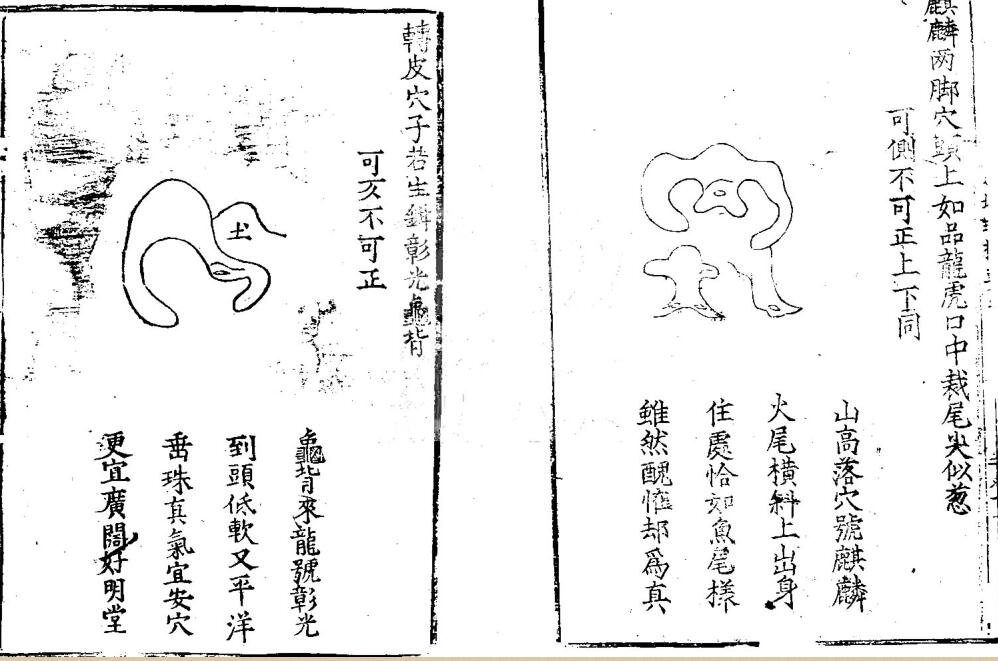 麒麟两脚穴顕上如品龍虎口中裁尾尖似葱
可側不可正上下同
山高落穴號麒麟
火尾横斜上出身
住處恰如魚尾樣
雖然醜恠却為真
轉皮穴子若生鋅彰光龜背
可亥不可正
土
龜背來龍號彰光
到頭低軟又平洋
垂珠真氣宜安穴
更宜廣闊好明堂